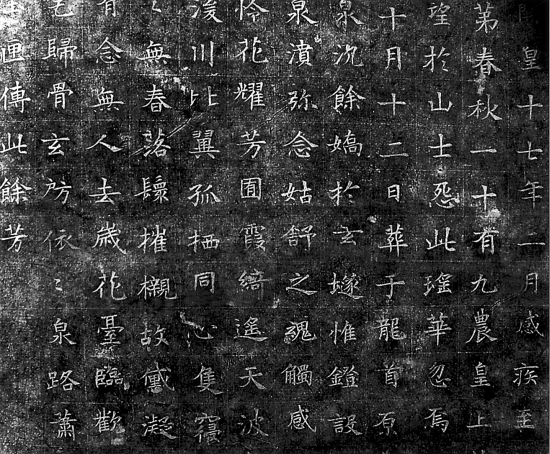 皇十七年二月感疾至
第春秋一十有九農皇上
望於山士怨此瑤華忽焉
十月十二日葬于龍首原
泉沉餘嬌於玄隧惟鐙設
泉濆弥念姑舒之魂觸感
怜花耀芳囿霞綺遙天波
浚川比翼孤栖同心隻寢
〻無春落鬟摧櫬故黛凝
有念無人去歲花臺臨歡
宅歸骨玄房依〻泉路蕭
匣傳此餘芳